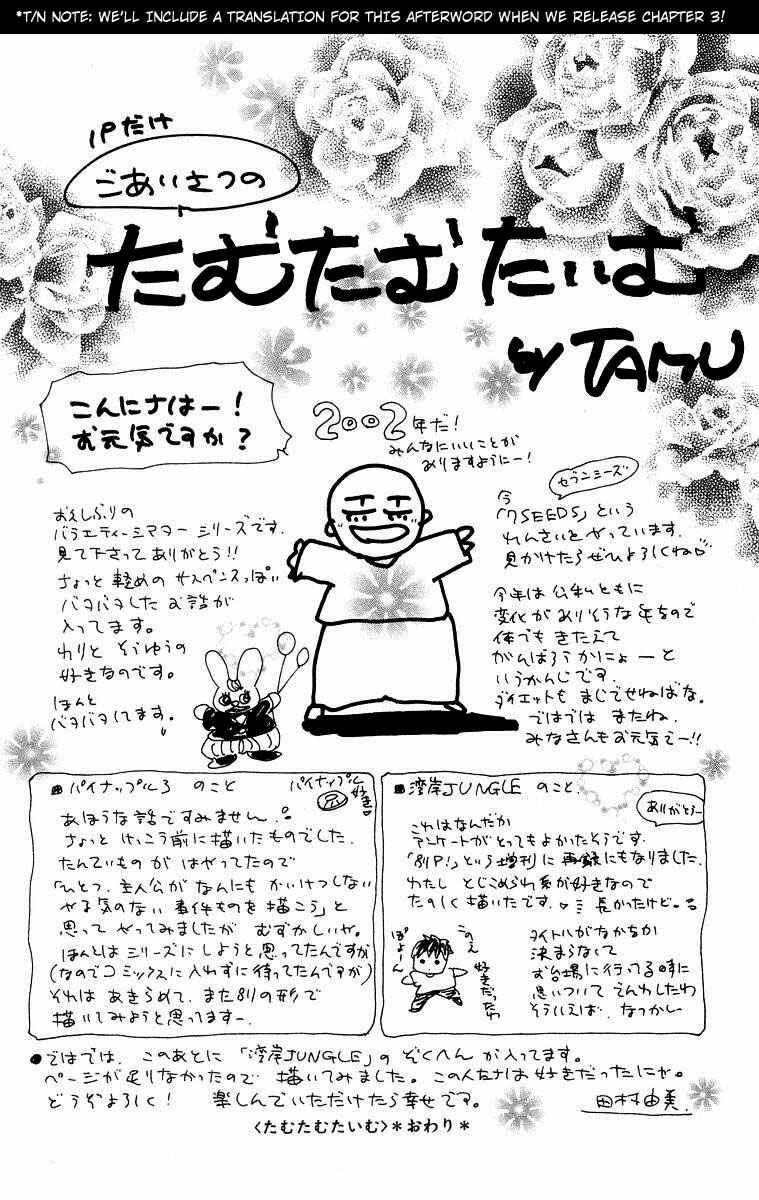 *T/N NOTE: WE'LL INCLUDE A TRANSLATION FOR THIS AFTERWORD WHEN WE RELEASE CHAPTER 3!
1Pだけ
ごあいさつの
たむたむたいむ
by TAMU
こんにちはー!
お元気ですか?
2002年だ!
みんなにいいことが
ありますようにー!
おひさしぶりの
バラエティー
シリーズです。
見て下さってありがとう!!
ちょっと軽めのサスペンスっぽい
バタバタしたお話が
入ってます。
わりとそうゆうの
好きなのです。
ほんと
バタバタしてます。
セブンシーズ
今
「7SEEDS」という
れんさいをやっています。
見かけたらぜひよろしくね
今年は公私ともに
変化がありそうな年なので
体でもきたえて
がんばろうかにょーと
いうかんじです。
ダイエットもまじでせねばな。
ではではまたね。
みなさんもお元気でー!!
パイナップル3のこと
パイナップル
好き
あほうな話ですみません。
ちょっとけっこう前に描いたものでした。
たんていものがはやってたので
「ひとつ、主人公がなんにもかいけつしない
やる気のない事件ものを描こう」と
思ってやってみましたがむずかしいや。
ほんとはシリーズにしようと思ってたんですが
(なのでコミックスに入れずに待ってたんですが)
それはあきらめて、また別の形で
描いてみようと思ってますー。
湾岸JUNGLEのこと
ありがとー
これはなんだか
アンケートがとってもよかったそうです。
「別P!」という増刊に再録にもなりました。
わたしとじこめられ系が好きなので
たのしく描いたです。長かったけどーる
ぽよーん
このえ
好きだったわ
タイトルがなかなか
決まらなくて
お台場に行ってる時に
思いついて
そういえば。なつかし
●ではでは、このあとに「湾岸JUNGLE」のぞくへんが入ってます。
ページが足りなかったので描いてみました。この人たちは好きだったにゃ。
どうぞよろしく! 楽しんでいただけたら幸せです。
田村由美
〈たむたむたいむ〉*おわり*